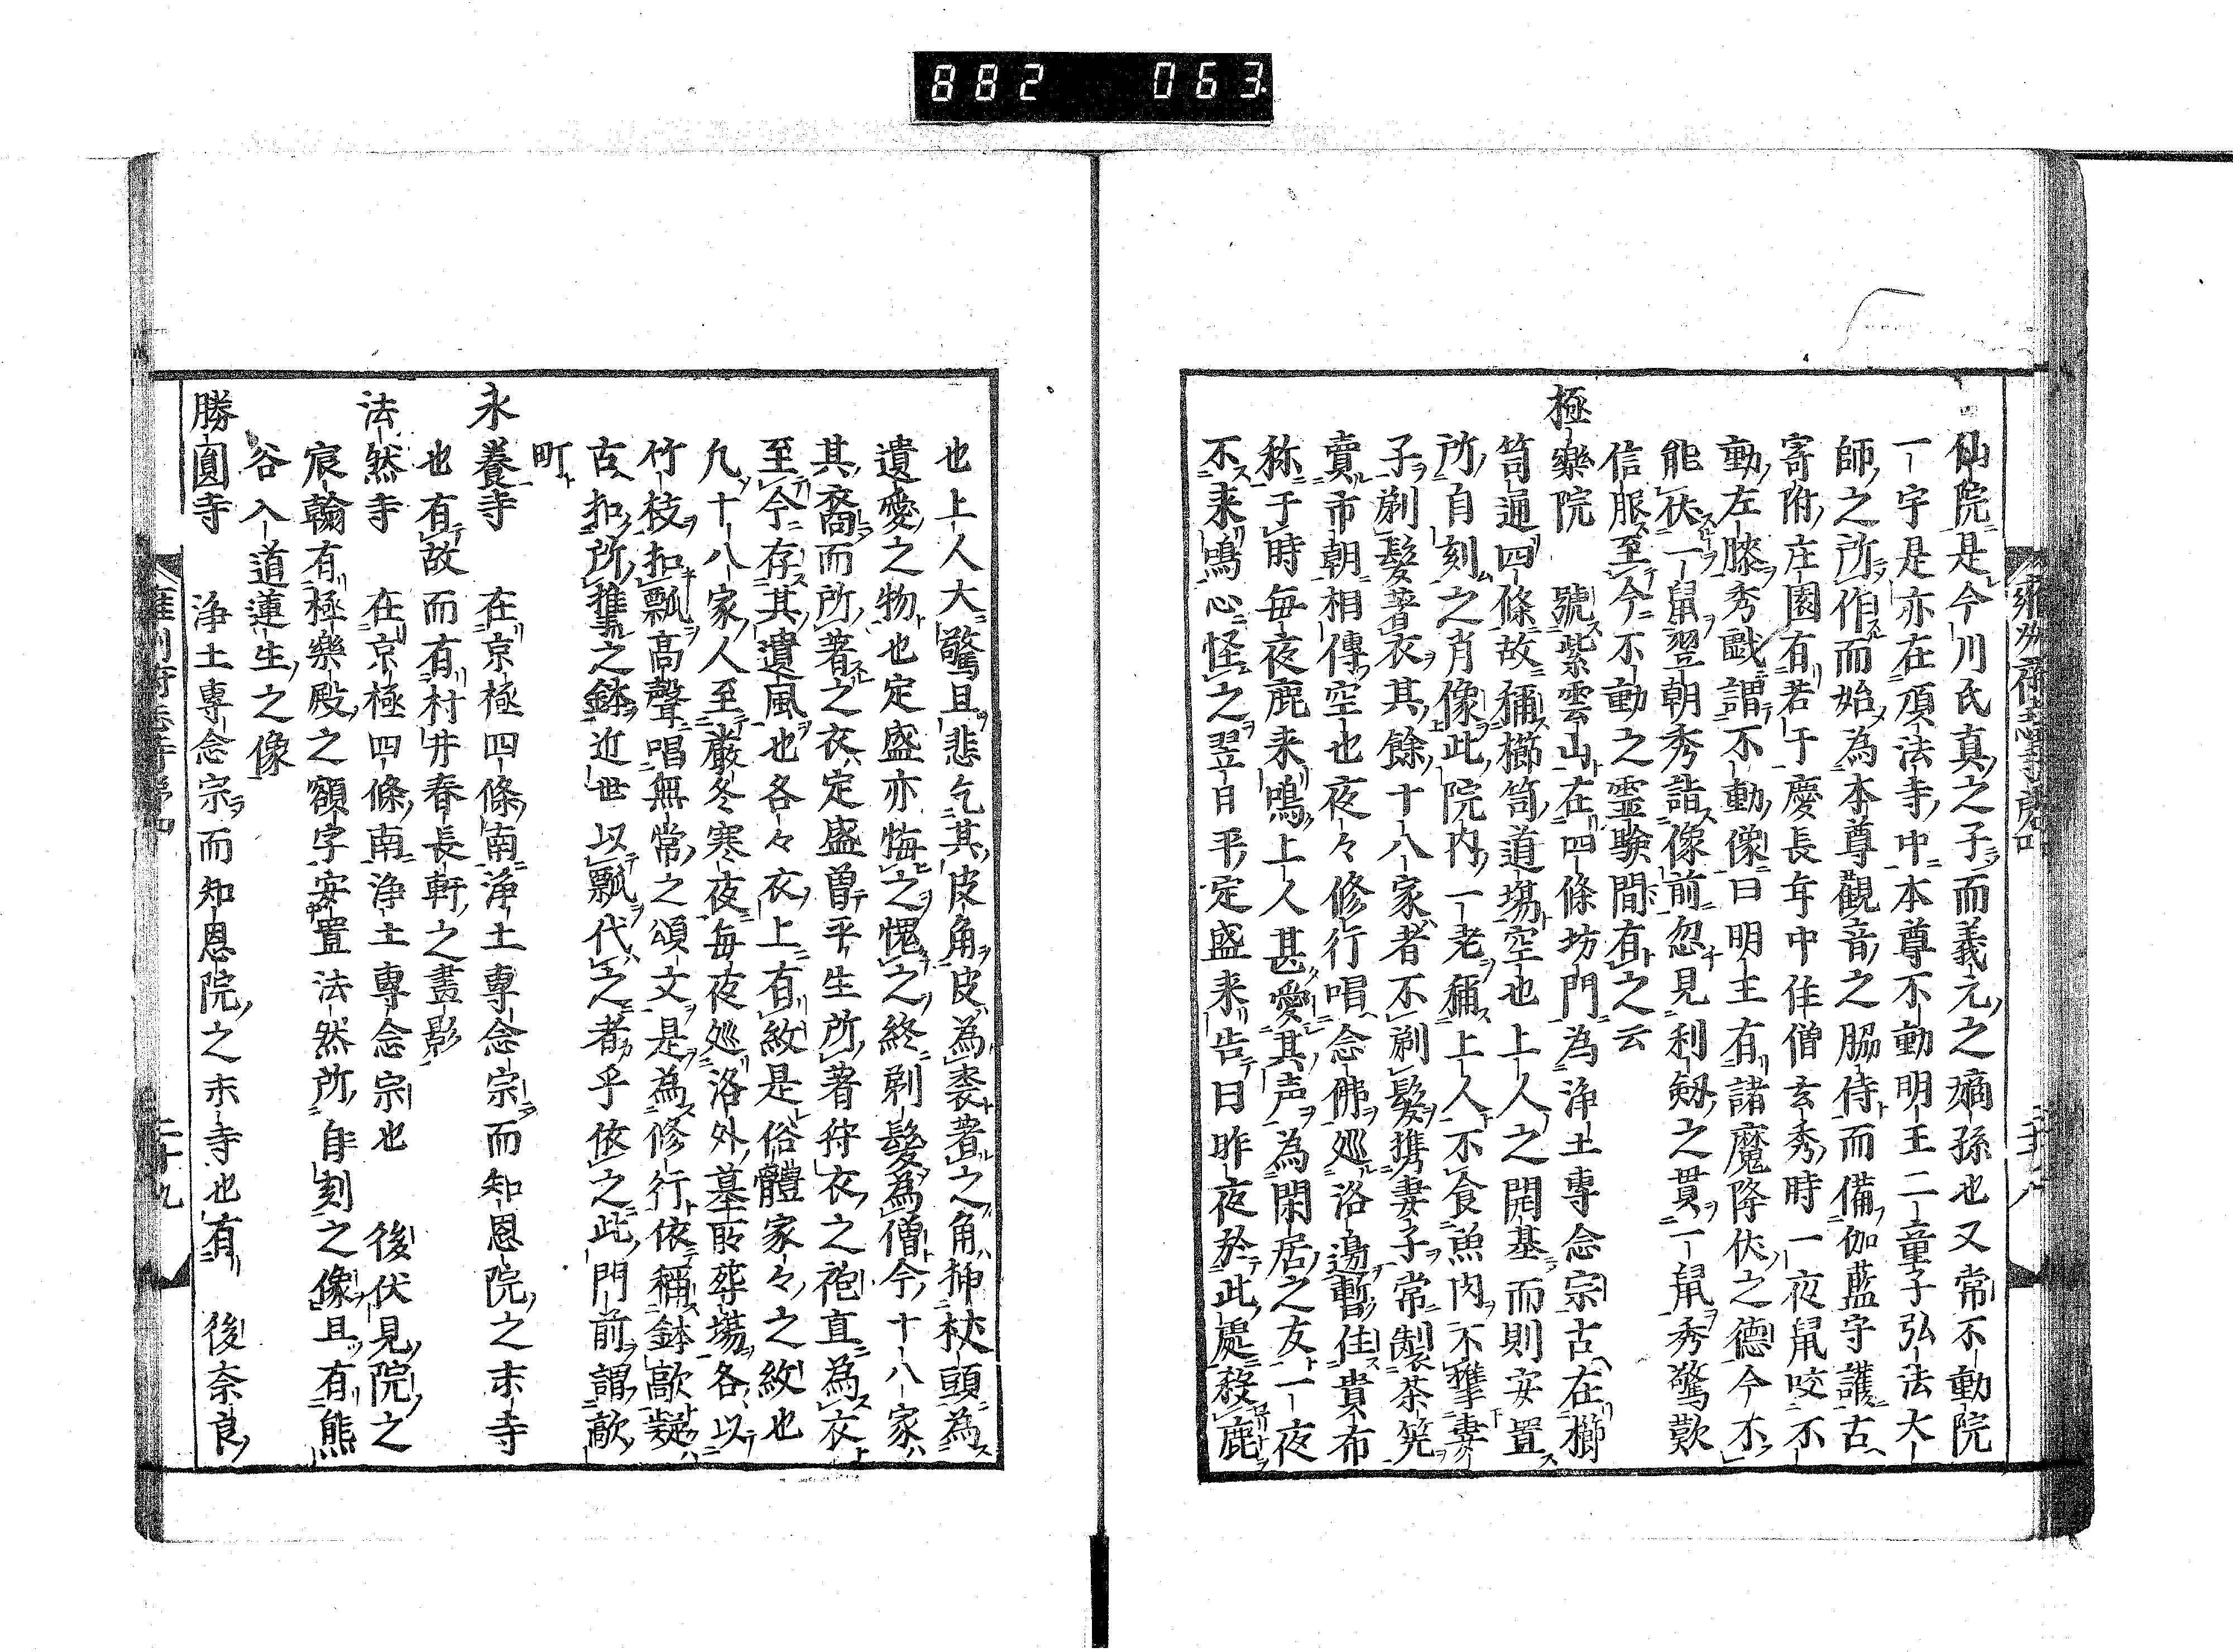 882 063
仙院是今川氏真之子而義元之嫡孫也又常不動院
一宇是亦在頂法寺中本尊不動明王二童子弘法大
師之所作而始為本尊觀音之脇侍而備伽藍守護古
寄附庄園有若于慶長年中住僧玄秀時一夜鼠咬不
動左膝秀戯謂不動像曰明王有諸魔降伏之德今不
能伏一鼠翌朝秀詣像前忽見利劔之貫一鼠秀驚歎
信服至今不動之霊驗間有之云
極樂院 號紫雲山在四條坊門為浄土專念宗古在櫛
笥通四條故稱櫛笥道場空也上人之開基而則安置
所自刻之肖像此院内一老稱上人不食魚肉不携妻
子剃髮著衣其餘十八家者不剃髮携妻子常製茶筅
賣市朝相傳空也夜々修行唱念佛巡洛邊暫住貴布
祢于時毎夜鹿来鳴上人甚愛其声為閑居之友一夜
不来鳴心怪之翌日平定盛来告曰昨夜於此處殺鹿
也上人大驚且悲乞其皮角皮為裘著之角挿杖頭為
遺愛之物也定盛亦悔之愧之終剃髮為僧今十八家
其裔而所著之衣定盛曽平生所著狩衣之袍直為衣
至今存其遺風也各々衣上有紋是俗體家々之紋也
凢十八家人至嚴冬寒夜毎夜巡洛外墓所葬場各以
竹枝扣瓢高聲唱無常之頌文是為修行依稱鉢敲疑
古扣所携之鉢近世以瓢代之者乎依之此門前謂敲
町
永養寺 在京極四條南浄土專念宗而知恩院之末寺
也有故而有村井春長軒之畫影
法然寺 在京極四條南浄土專念宗也 後伏見院之
宸翰有極樂殿之額字安置法然所自刻之像且有熊
谷入道蓮生之像
勝圓寺 浄土專念宗而知恩院之末寺也有 後奈良
二十九